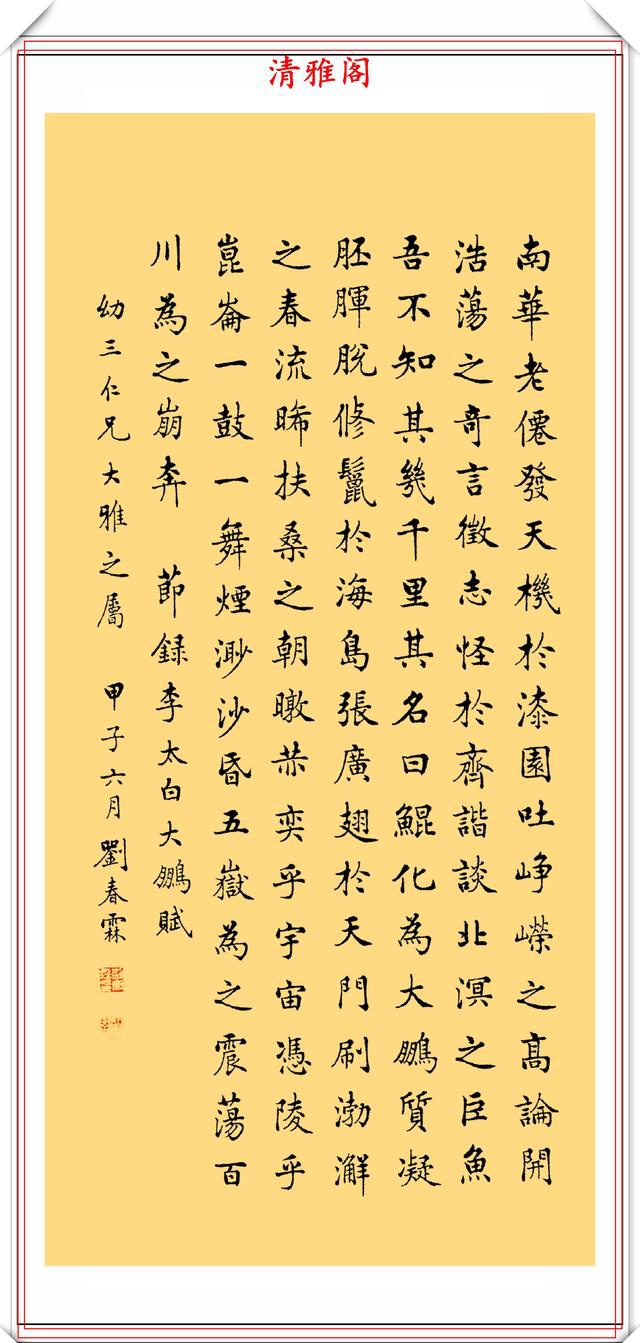 清雅阁
南華老僊發天機於漆園吐峥嶸之高論開
浩蕩之奇言徵志怪於齊諧談北溟之巨魚
吾不知其幾千里其名曰鯤化為大鵬質凝
胚腪脫修鬛於海島張廣翅於天門刷渤澥
之春流晞扶桑之朝暾㷠奕乎宇宙憑陵乎
崑崙一鼓一舞煙渺沙昏五嶽為之震蕩百
川為之崩奔 節録李太白大鵬賦
幼三仁兄大雅之屬 甲子六月劉春霖